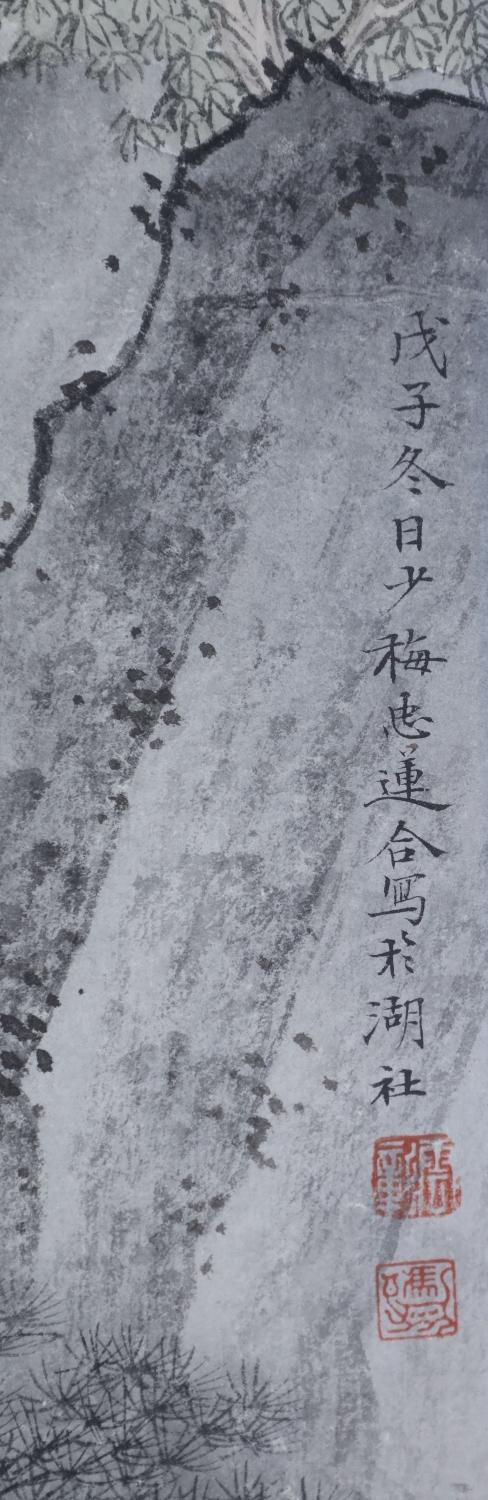 戊子冬日少梅忠蓮合寫於湖社